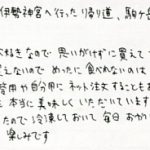 伊勢神宮へ行った帰り道、駒ヶ岳
大好きなので思いがけずに買えて
えないので めったに食べれないのは
答用や自分用にネット注文することもあ
本当に美味しくいただいています
たので冷凍しておいて毎日おかい
楽しみです